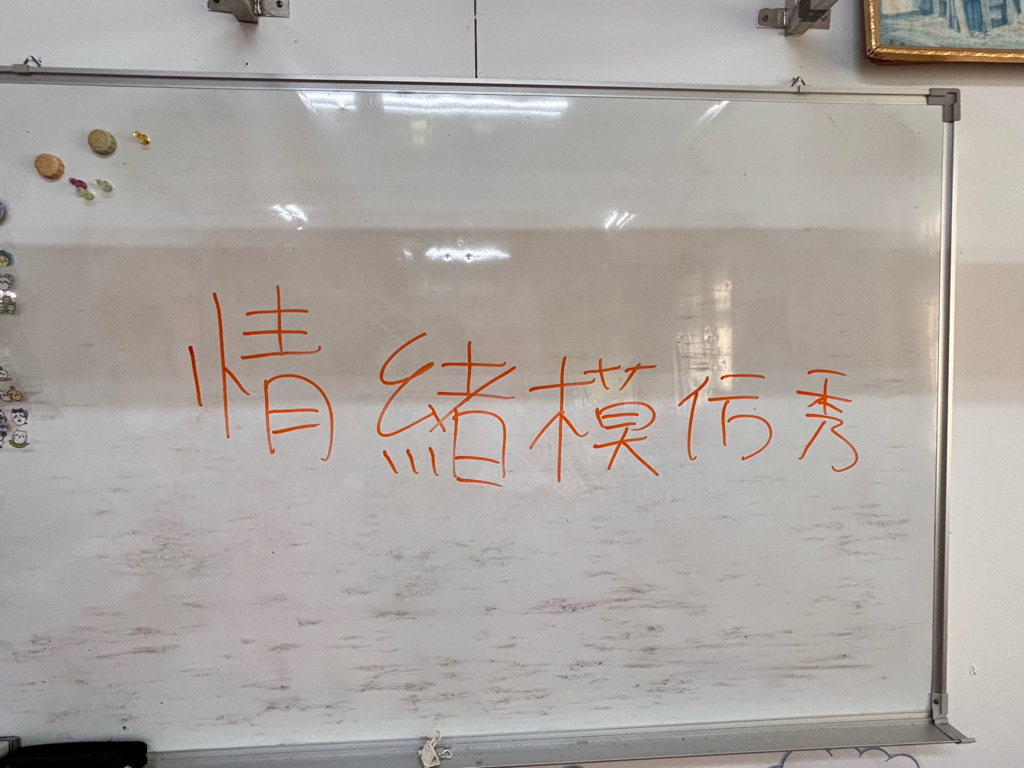 情緒模仿秀